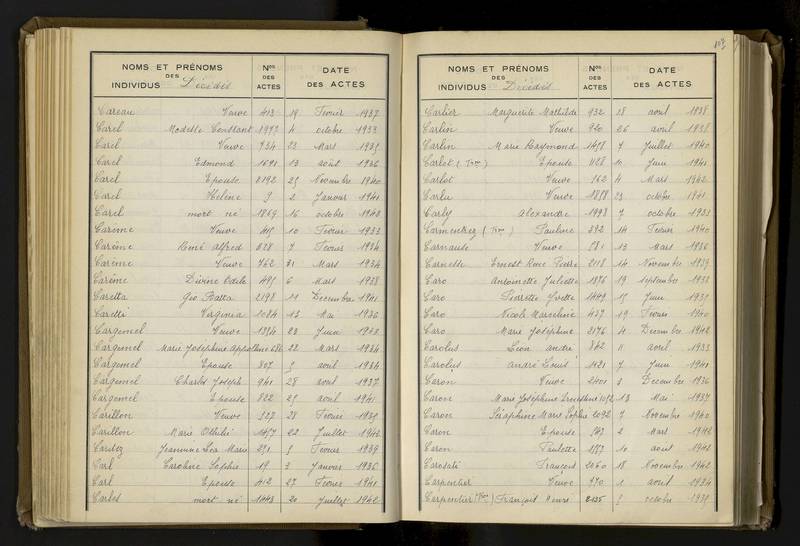 NOMS ET PRÉNOMS DES INDIVIDUS Décédés Nos DES ACTES DATE DES ACTES
Careau Veuve 413 19 Février 1937
Carel Modeste Constant 1973 4 octobre 1933
Carel Veuve 734 23 Mars 1935
Carel Edmond 1691 13 août 1936
Carel Epouse 2192 25 Novembre 1940
Carel Hélène 9 2 Janvier 1941
Carel mort né 1869 16 octobre 1940
Carême Veuve 415 10 Février 1933
Carême René Alfred 328 7 Février 1934
Carême Veuve 762 31 Mars 1934
Carême Divine Odile 495 6 Mars 1938
Caretta Gio Batta 2198 11 Décembre 1941
Caretti Virginia 1084 15 Mai 1936
Cargemel Veuve 1394 23 Juin 1940
Cargemel Marie Joséphine 686 22 Mars 1934
Cargemel Epouse 807 5 avril 1934
Cargemel Charles Joseph 941 28 avril 1937
Cargemel Epouse 822 25 avril 1941
Carillon Veuve 527 28 Février 1935
Carillon Marie 1457 22 Juillet 1942
Jeannine Léa Marie 271 5 Février 1939
Carl Caroline Sophie 19 3 Janvier 1936
Carl Epouse 412 27 Février 1941
Carles mort né 1443 20 Juillet 1942
NOMS ET PRÉNOMS DES INDIVIDUS Décédés Nos DES ACTES DATE DES ACTES
Carlier Marguerite Mathilde 932 18 avril 1938
Carlin Veuve 920 26 avril 1938
Carlin Marie Raymond 1458 7 Juillet 1940
Carlot Epouse 1128 11 Juin 1941
Carlot Veuve 562 4 Mars 1942
Carlu Veuve 1858 23 octobre 1941
Carly Alexandre 1998 7 octobre 1933
Carmentrez Pauline 392 14 Février 1940
Carnaute Veuve 581 13 Mars 1936
Carnelle Ernest René Pierre 2118 14 Novembre 1939
Caro Antoinette Juliette 1876 19 septembre 1938
Caro Pierrette Yvette 1449 15 Juin 1935
Caro Nicole Marceline 437 19 Février 1940
Caro Marie Joséphine 2176 4 Décembre 1942
Carolus Léon André 842 11 avril 1933
Carolus André Louis 1121 7 Juin 1941
Caron Veuve 2401 3 Décembre 1936
Caron Marie Joséphine Ernestine 1072 13 Mai 1937
Caron Séraphine Marie Sophie 2092 7 Novembre 1940
Caron Epouse 543 2 Mars 1942
Caron Paulette 1573 10 août 1942
François 2060 18 Novembre 1942
Carpentier Veuve 1 août 1934
Carpentier François Henri 2135 5 octobre 1935